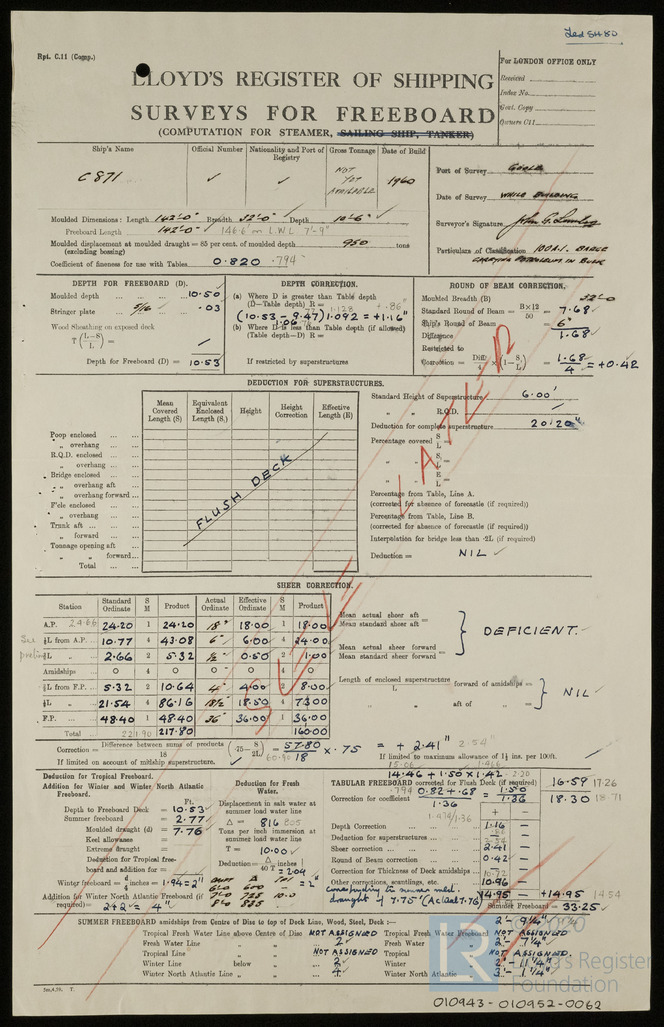 Rpt. C.11 (Comp.)
LLOYD'S REGISTER OF SHIPPING
SURVEYS FOR FREEBOARD
(COMPUTATION FOR STEAMER, SAILING SHIP, TANKER)
For LONDON OFFICE ONLY
Received
Index No.
Govt. Copy
Owners C11
Ship's Name
Official Number
Nationality and Port of Registry
Gross Tonnage
Date of Build
C871 ✓ ✓ NOT YET AVAILABLE 1960
Port of Survey GOOLE
Date of Survey WHILE BUILDING
Surveyor's Signature
Particulars of Classification 100A1. BARGE
CARRYING PETROLEUM IN BULK
Moulded Dimensions: Length 142'-0" Breadth 32'-0" Depth 10'-6"
Freeboard Length 142'-0" 146.6' on L.W.L 7'-9"
Moulded displacement at moulded draught = 85 per cent. of moulded depth 950 tons
(excluding bossing)
Coefficient of fineness for use with Tables 0.820 .794
DEPTH FOR FREEBOARD (D).
Moulded depth 10.50
Stringer plate 5/16 .03
Wood Sheathing on exposed deck
T(L-S/L) =
Depth for Freeboard (D) = 10.53
DEPTH CORRECTION.
(a) Where D is greater than Table depth
(D-Table depth) R = +.86"
(10.53 - 9.47) 1.092 = +1.16"
(b) Where D is less than Table depth (if allowed)
(Table depth-D) R =
If restricted by superstructures
ROUND OF BEAM CORRECTION.
Moulded Breadth (B) 32'-0
Standard Round of Beam = B×12/50 = 7.68
Ship's Round of Beam = 6"
Difference 1.68
Restricted to
Correction = Diff/4 × (1-S/L) = 1.68/4 = +0.42
DEDUCTION FOR SUPERSTRUCTURES.
Mean Covered Length (S)
Equivalent Enclosed Length (S₁)
Height
Height Correction
Effective Length (E)
Poop enclosed
" overhang
R.Q.D. enclosed
" overhang
Bridge enclosed
" overhang aft
" overhang forward
F'cle enclosed
" overhang
Trunk aft
" forward
Tonnage opening aft
" " forward
Total
FLUSH DECK
Standard Height of Superstructure 6.00'
" " R.Q.D.
Deduction for complete superstructure 20.20"
Percentage covered S/L =
" " S₁/L =
" " E/L =
Percentage from Table, Line A.
(corrected for absence of forecastle (if required))
Percentage from Table, Line B.
(corrected for absence of forecastle (if required))
Interpolation for bridge less than ·2L (if required)
Deduction = NIL
SHEER CORRECTION.
Station
Standard Ordinate
S M
Product
Actual Ordinate
Effective Ordinate
S M
Product
A.P. 24.66 24.20 1 24.20 18" 18.00 1 18.00
⅙L from A.P. 10.77 4 43.08 6" 6.00 4 24.00
⅓L " 2.66 2 5.32 ½" 0.50 2 1.00
Amidships 0 4 0 0 0 4 0
⅓L from F.P. 5.32 2 10.64 4" 4.00 2 8.00
⅙L " 21.54 4 86.16 18½" 18.50 4 73.00
F.P. 48.40 1 48.40 36" 36.00 1 36.00
Total 221.90 217.80 160.00
Mean actual sheer aft
Mean standard sheer aft =
Mean actual sheer forward
Mean standard sheer forward =
DEFICIENT.
Length of enclosed superstructure forward of amidships =
L
" " aft of " =
NIL
Correction = Difference between sums of products/18 (·75 - S/2L) = 57.80/18 × .75 = +2.41" 2.54"
If limited on account of midship superstructure. 60.90
If limited to maximum allowance of 1½ ins. per 100ft.
Deduction for Tropical Freeboard.
Addition for Winter and Winter North Atlantic
Freeboard.
Ft.
Depth to Freeboard Deck = 10.53
Summer freeboard = 2.77
Moulded draught (d) = 7.76
Keel allowance =
Extreme draught =
Deduction for Tropical freeboard and addition for
Winter freeboard = d/4 inches = 1.94 = 2"
Addition for Winter North Atlantic Freeboard (if
required) = 2+2 = 4"
Deduction for Fresh
Water.
Displacement in salt water at
summer load water line
Δ = 816 805
Tons per inch immersion at
summer load water line
T = 10.00
Deduction = Δ/40 T inches
= 2.04
= 2"
TABULAR FREEBOARD corrected for Flush Deck (if required)
14.46 + 1.50 × 1.42
16.59 17.26
Correction for coefficient .794 0.82+.68/1.36 = 1.50/1.36 18.30 18.71
+ -
Depth Correction 1.16 -
Deduction for superstructures - -
Sheer correction 2.41 -
Round of Beam correction 0.42 -
Correction for Thickness of Deck amidships - -
Other corrections, scantlings, etc. 10.96 -
corresponding to summer mld.
draught of 7.75' (Actual 7.76)
14.95 +14.95 14.54
Summer Freeboard = 33.25
SUMMER FREEBOARD amidships from Centre of Disc to top of Deck Line, Wood, Steel, Deck:—
Tropical Fresh Water Line above Centre of Disc NOT ASSIGNED
Fresh Water Line " " 2"
Tropical Line " " NOT ASSIGNED
Winter Line below " 2"
Winter North Atlantic Line " " 4"
2'- 9¼"
Tropical Fresh Water Freeboard NOT ASSIGNED
Fresh Water " 2'- 7¼"
Tropical " NOT ASSIGNED.
Winter " 2'- 11¼"
Winter North Atlantic " 3'- 1¼"
SEE LATER
LR
Lloyd's Register
Foundation
010943-010952-0062